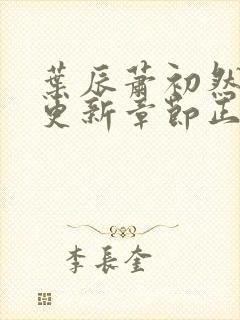 葉辰蕭初然
更新章節正
李長奎